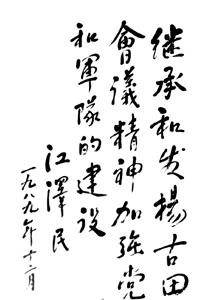 继承和发揚古田
會議精神加強党
和軍隊的建设
江澤民
一九八九年十二月